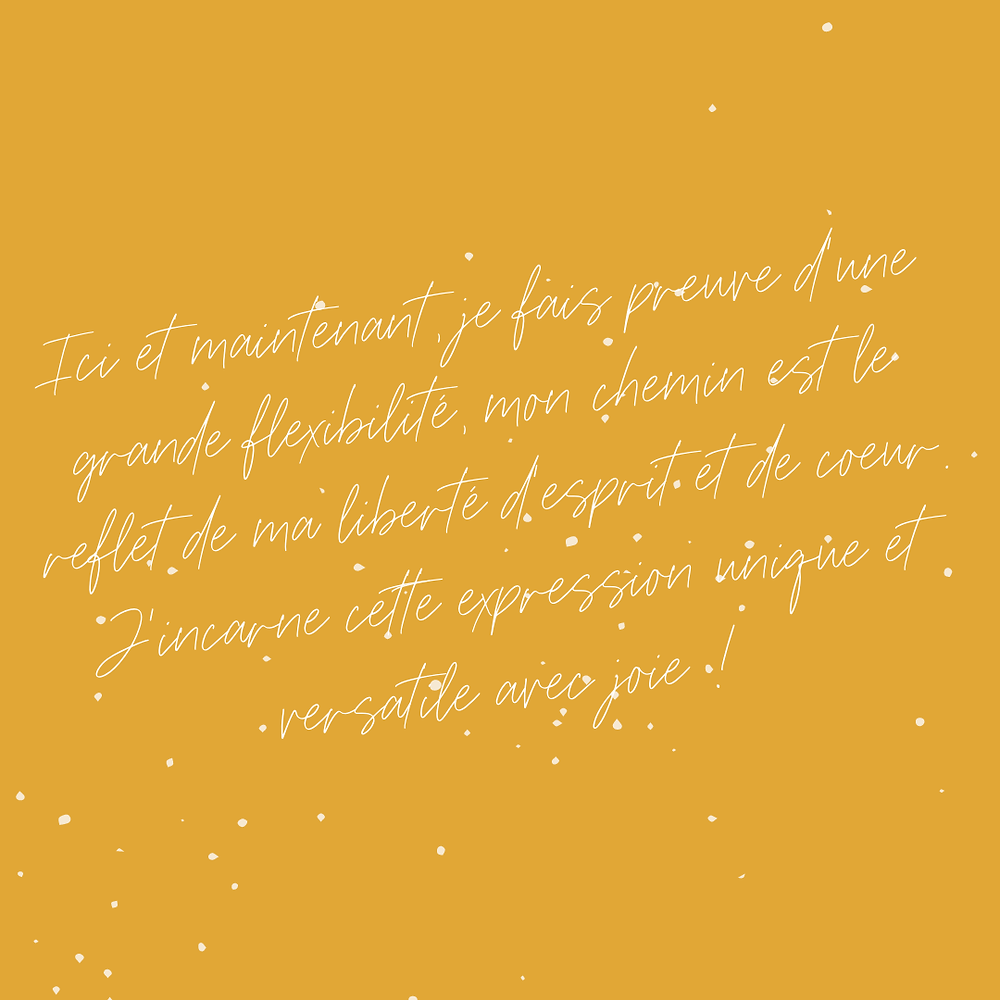 Ici et maintenant, je fais preuve d'une
grande flexibilité, mon chemin est le
reflet de ma liberté d'esprit et de coeur.
J'incarne cette expression unique et
versatile avec joie !